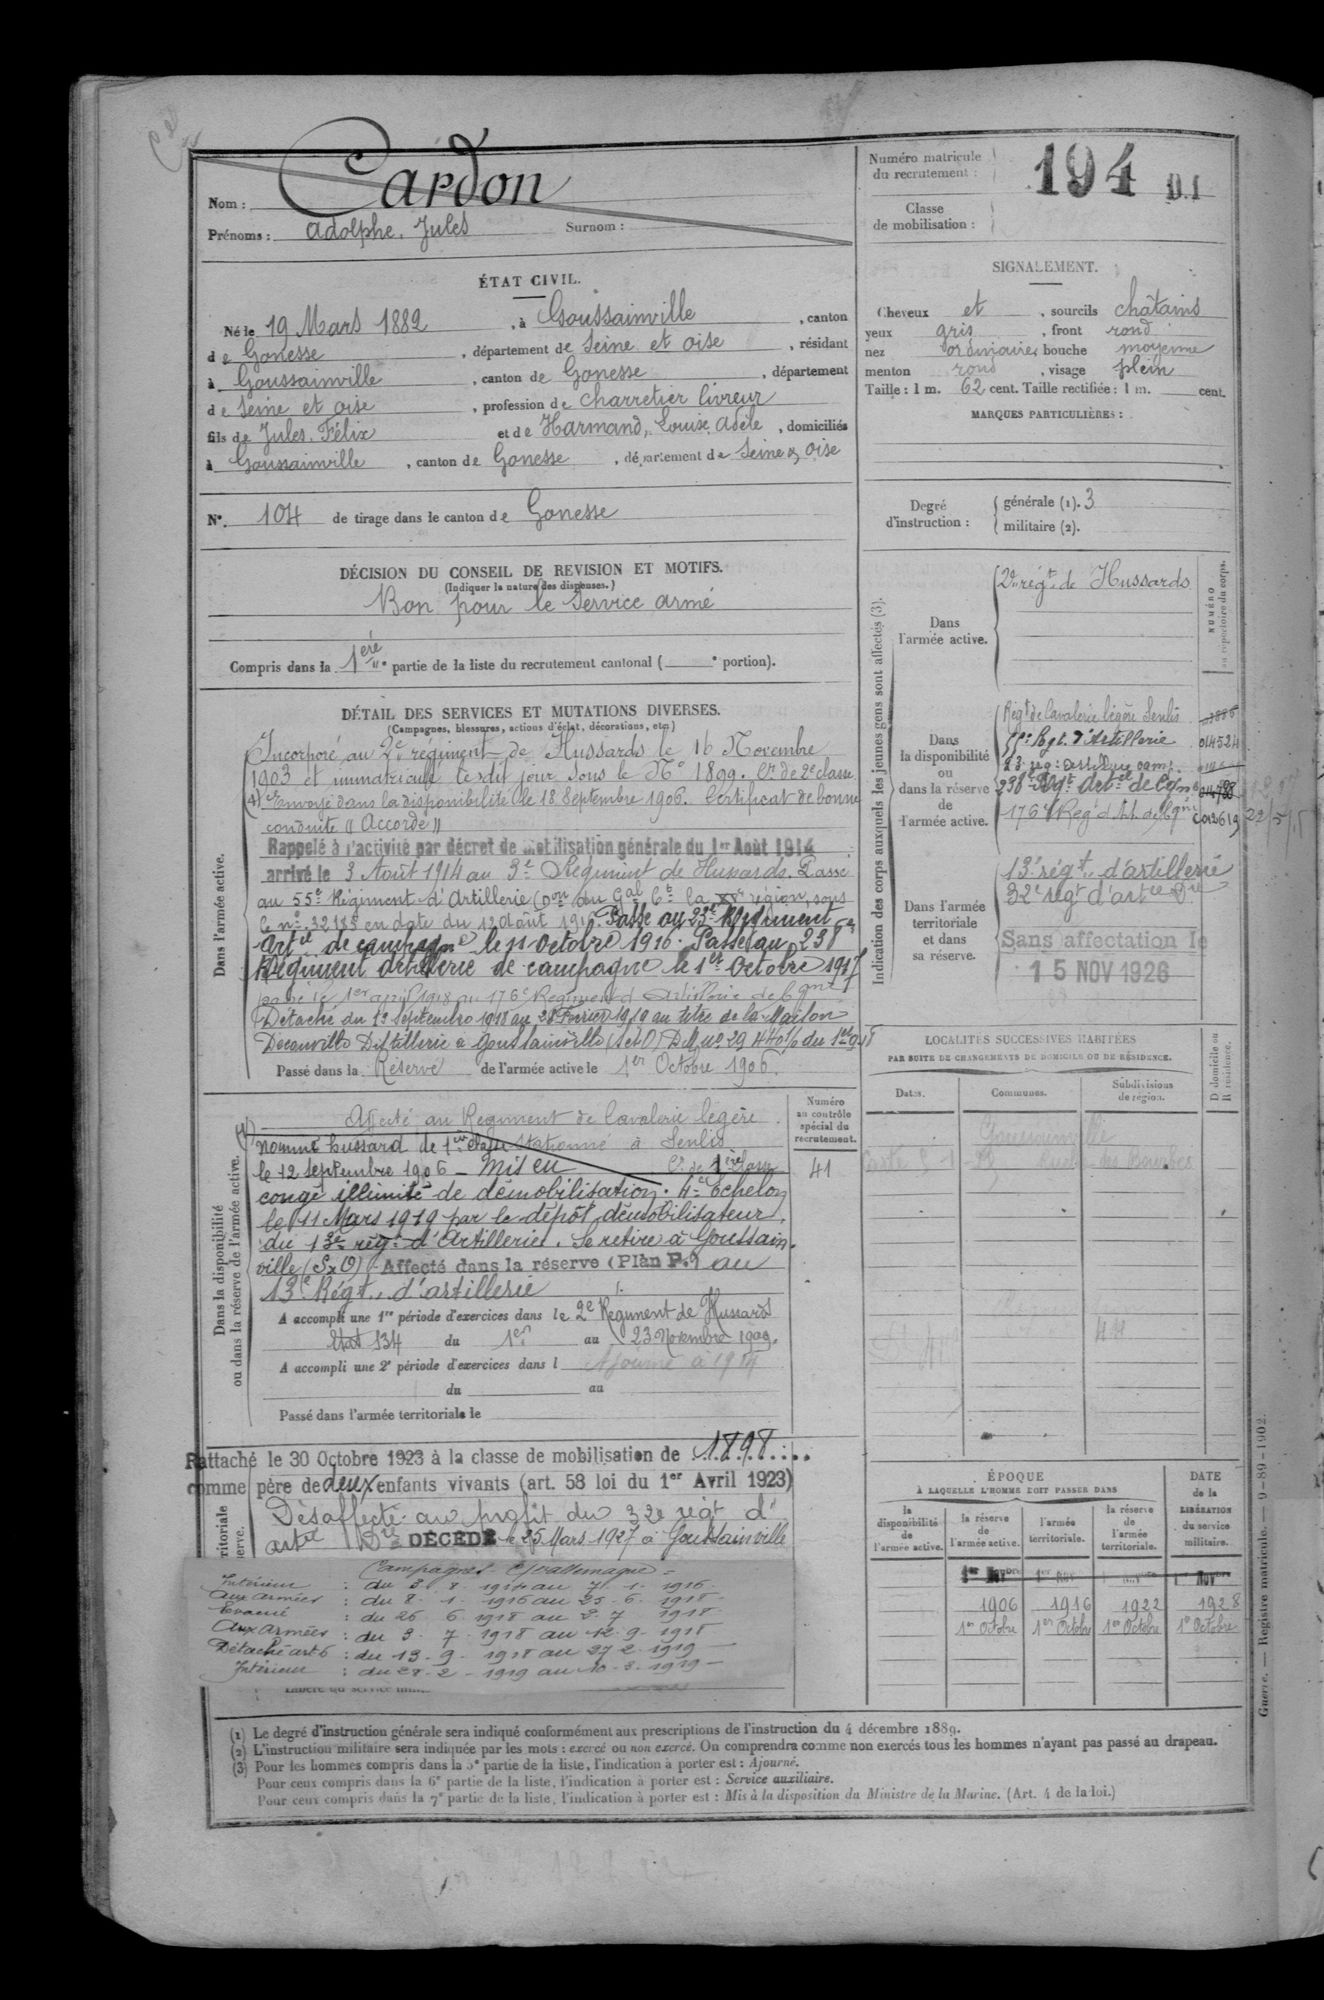 Nom : Cardon
Prénoms : Adolphe, Jules Surnom :
ÉTAT CIVIL.
Né le 19 Mars 1882, à Goussainville, canton
de Gonesse, département de Seine et Oise, résidant
à Goussainville, canton de Gonesse, département
de Seine et Oise, profession de charretier livreur
fils de Jules, Félix et de Harmand, Louise Adèle, domiciliés
à Goussainville, canton de Gonesse, département de Seine & Oise
N°. 104 de tirage dans le canton de Gonesse
DÉCISION DU CONSEIL DE REVISION ET MOTIFS.
(Indiquer la nature des dispenses.)
Bon pour le Service armé
Compris dans la 1ère partie de la liste du recrutement cantonal ( e portion).
DÉTAIL DES SERVICES ET MUTATIONS DIVERSES.
(Campagnes, blessures, actions d'éclat, décorations, etc.)
Dans l'armée active.
Incorporé au 2e régiment de Hussards le 16 Novembre
1903 et immatriculé le dit jour sous le N° 1899. Cr de 2e classe
(4) Envoyé dans la disponibilité le 18 Septembre 1906. Certificat de bonne
conduite "Accordé"
Rappelé à l'activité par décret de mobilisation générale du 1er Août 1914
arrivé le 3 Août 1914 au 3e Régiment de Hussards. Passé
au 55e Régiment d'Artillerie (Don du Gal Ct la XVe région, sous
le n° 32185 en date du 12 Août 1916. Passé au 23e Régiment
Artie de campagne le 11 Octobre 1916. Passé au 238e
Régiment d'Artillerie de campagne le 1er Octobre 1917
passé le 1er avril 1918 au 176e Régiment d'Artillerie de Cgne
Détaché du 13 Septembre 1918 au 28 Février 1919 au titre de la Maison
Decauville Distillerie à Goussainville (S et O) D.M. n° 29440 1/0 du
Passé dans la Réserve de l'armée active le 1er Octobre 1906.
Dans la disponibilité
ou dans la réserve de l'armée active.
Affecté au Régiment de Cavalerie légère
(4) Nommé hussard de 1ère classe stationné à Senlis
le 12 septembre 1906 - Mis en Cr de 1ère classe
congé illimité de démobilisation. 4e Echelon
le 11 Mars 1919 par le dépôt démobilisateur
du 13e régt d'Artillerie. Se retire à Goussain-
ville (S&O) Affecté dans la réserve (Plan P.) au
13e Régt. d'artillerie
A accompli une 1re période d'exercices dans le 2e Régiment de Hussards
134 du 1er au 23 Novembre 1909.
A accompli une 2e période d'exercices dans l Ajourné à 1914
du au
Passé dans l'armée territoriale le
Numéro
au contrôle
spécial du
recrutement.
41
Rattaché le 30 Octobre 1923 à la classe de mobilisation de 1898
comme père de deux enfants vivants (art. 58 loi du 1er Avril 1923)
Désaffecté au profit du 32e régt d'
artie Dre DÉCÉDÉ le 25 Mars 1927 à Goussainville
Campagnes C/ Allemagne =
Intérieur : du 3. 8. 1914 au 7. 1. 1916.
Aux armées : du 8. 1. 1916 au 25. 6. 1918
Evacué : du 26 6. 1918 au 2. 7 1918
Aux armées : du 3. 7. 1918 au 12. 9. 1918
Détaché art 6 : du 13. 9. 1918 au 27. 2. 1919
Intérieur : du 28. 2. 1919 au 10. 3. 1919
Numéro matricule
du recrutement : 194 D.I
Classe
de mobilisation :
SIGNALEMENT.
Cheveux et, sourcils châtains
yeux gris, front rond
nez ordinaire, bouche moyenne
menton rond, visage plein
Taille : 1 m. 62 cent. Taille rectifiée : 1 m. cent.
MARQUES PARTICULIÈRES :
Degré
d'instruction :
générale (1). 3
militaire (2).
Indication des corps auxquels les jeunes gens sont affectés (3).
NUMÉRO
au répertoire du corps.
Dans
l'armée active.
2e régt de Hussards
Dans
la disponibilité
ou
dans la réserve
de
l'armée active.
Régt de Cavalerie légère Senlis
55e Régt. d'Artillerie 014524
23 rég: artillerie camp.
238e Régt Artie de Cgne 014788
176e Rég d'Art. de Cgne C 012619
Dans l'armée
territoriale
et dans
sa réserve.
13e régt. d'artillerie
32e régt d'artie Dre
Sans affectation le
15 NOV 1926
LOCALITÉS SUCCESSIVES HABITÉES
PAR SUITE DE CHANGEMENTS DE DOMICILE OU DE RÉSIDENCE.
Dates. Communes. Subdivisions
de région. D domicile ou
R résidence.
Goussainville
ÉPOQUE
À LAQUELLE L'HOMME DOIT PASSER DANS
la
disponibilité
de
l'armée active.
la
réserve
de
l'armée active.
l'armée
territoriale.
la réserve
de
l'armée
territoriale.
DATE
de la
LIBÉRATION
du service
militaire.
1906 1916 1922 1928
1er Octobre 1er Octobre 1er Octobre 1er Octobre
(1) Le degré d'instruction générale sera indiqué conformément aux prescriptions de l'instruction du 4 décembre 1889.
(2) L'instruction militaire sera indiquée par les mots : exercé ou non exercé. On comprendra comme non exercés tous les hommes n'ayant pas passé au drapeau.
(3) Pour les hommes compris dans la 5e partie de la liste, l'indication à porter est : Ajourné.
Pour ceux compris dans la 6e partie de la liste, l'indication à porter est : Service auxiliaire.
Pour ceux compris dans la 7e partie de la liste, l'indication à porter est : Mis à la disposition du Ministre de la Marine. (Art. 4 de la loi.)
Guerre. — Registre matricule. — 9-89-1902.